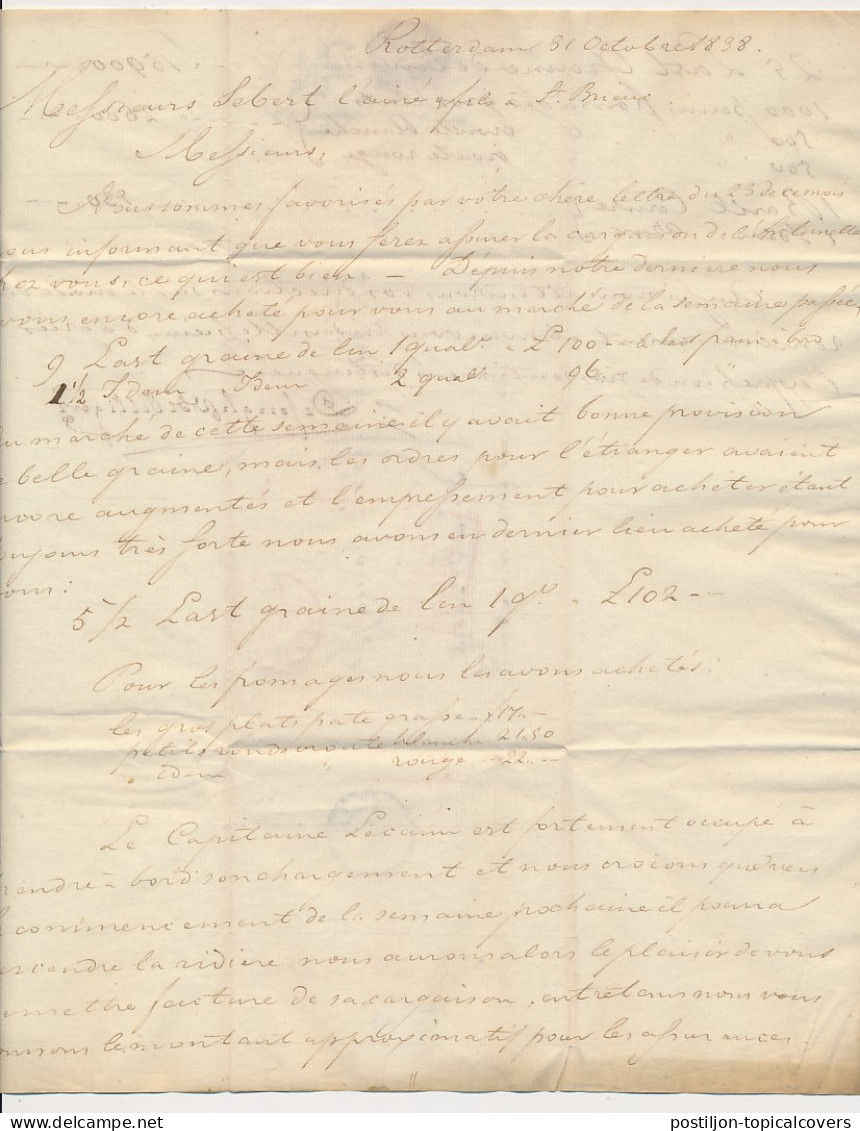 Rotterdam 31 Octobre 1838.
Messieurs Sebert l'ainé & fils à St. Brieuc
Messieurs,
Nous sommes favorisés par votre chère lettre du 23 de ce mois
ous informant que vous ferez assurer la cargaison de
hez vous, ce qui est bien — Dépuis notre derniere nous
vons encore acheté pour vous au marché de la semaine passée
9 Last graine de lin 1 qual. a £ 100 — le last franc à bord
1 1/2 Idem Idem 2 qual 96
u marché de cette semaine il y avait bonne provision
e belle graine, mais les ordres pour l'étranger avaient
ncore augmentés et l'empressement pour acheter étant
oujours très forte nous avons en dernier lieu acheté pour
ous:
5 1/2 Last graine de lin 1 q. a £ 102 --
Pour les fromages nous les avons achetés:
les gros plats pate grasse 17 —
petits ronds croute blanche 21.50
" Idem " rouge — 22. --
Le Capitaine Lecain est fortement occupé à
rendre à bord son chargement et nous croions que vers
e commencement de la semaine prochaine il pourra
escendre la rivière nous aurons alors le plaisir de vous
emettre facture de sa cargaison, entretems nous vous
onnons le montant approximatif pour les assurances.
postiljon-topicalcovers